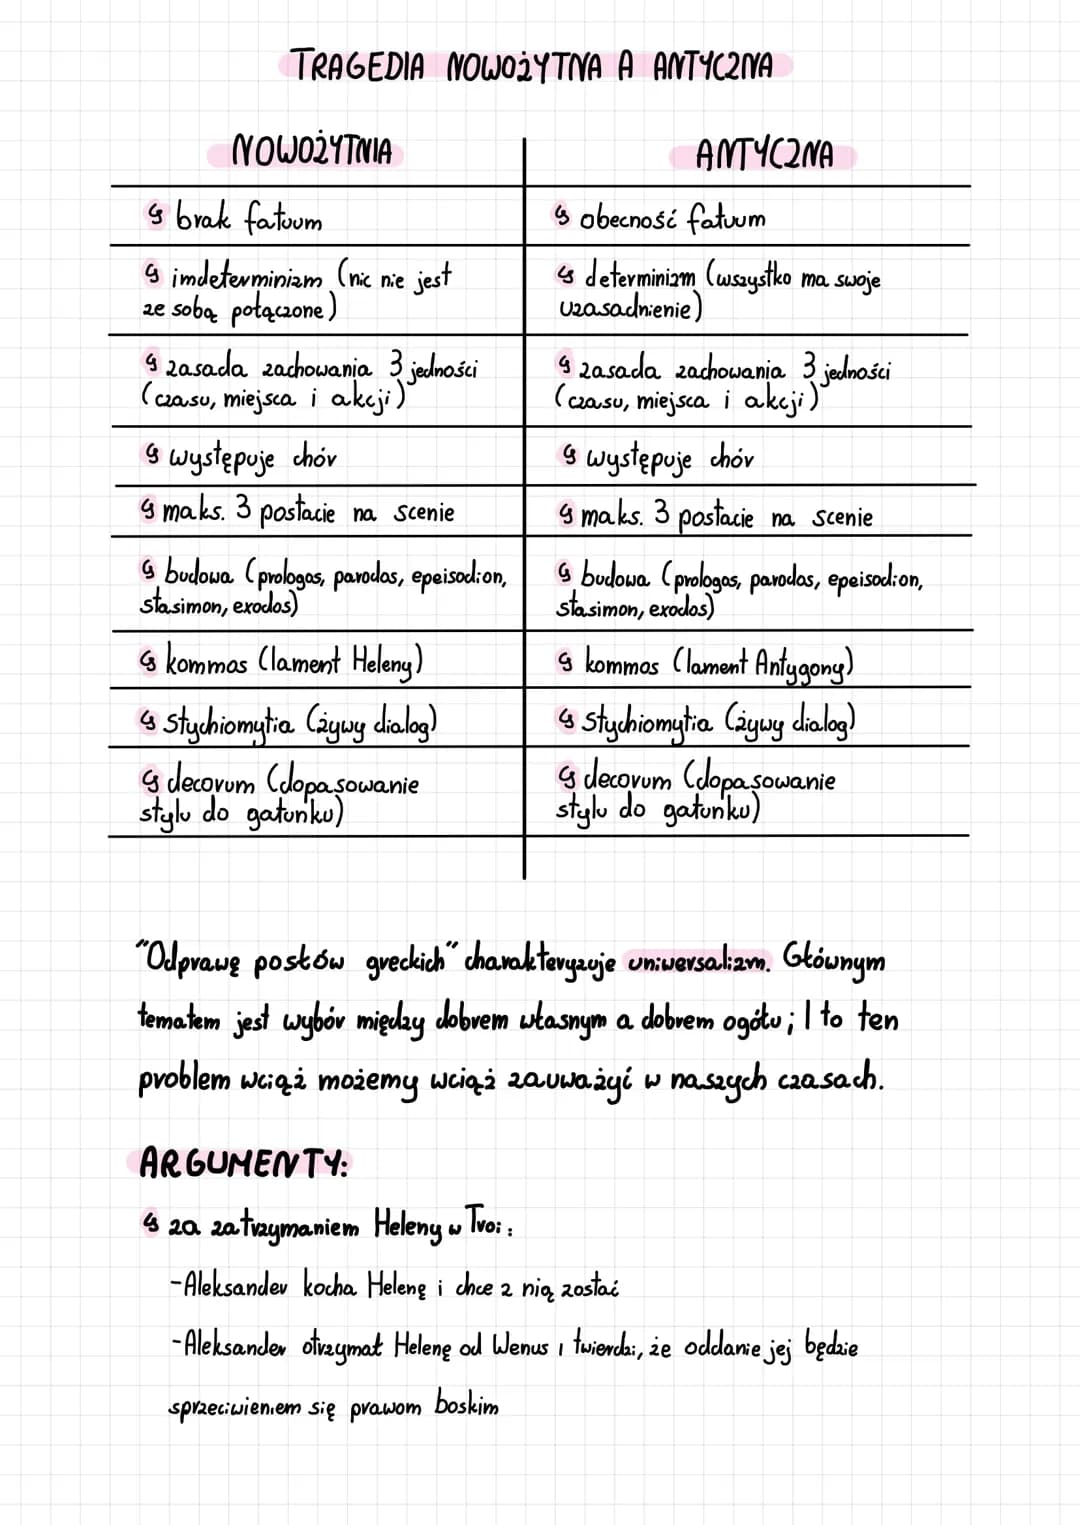 TRAGEDIA NOWOŻYTNA A ANTYCZNA
NOWOŻYTNIA
ANTYCZNA
↳ brak fatuum
↳ obecność fatuum
↳ imdeterminizm (nic nie jest
ze sobą połączone)
↳ determinizm (wszystko ma swoje
uzasadnienie)
↳ zasada zachowania 3 jedności
(czasu, miejsca i akcji)
↳ zasada zachowania 3 jedności
(czasu, miejsca i akcji)
↳ występuje chór
↳ występuje chór
↳ maks. 3 postacie na scenie
↳ maks. 3 postacie na scenie
↳ budowa (prologos, parodos, epeisodion,
stasimon, exodos)
↳ budowa (prologos, parodos, epeisodion,
stasimon, exodos)
↳ kommos (lament Heleny)
↳ kommos (lament Antygony)
↳ stychiomytia (żywy dialog)
↳ stychiomytia (żywy dialog)
↳ decorum (dopasowanie
stylu do gatunku)
↳ decorum (dopasowanie
stylu do gatunku)
"Odprawę posłów greckich" charakteryzuje uniwersalizm. Głównym
tematem jest wybór między dobrem własnym a dobrem ogółu; I to ten
problem wciąż możemy wciąż zauważyć w naszych czasach.
ARGUMENTY:
↳ za zatrzymaniem Heleny w Troi:
-Aleksander kocha Helenę i chce z nią zostać
-Aleksander otrzymał Helenę od Wenus i twierdzi, że oddanie jej będzie
sprzeciwieniem się prawom boskim